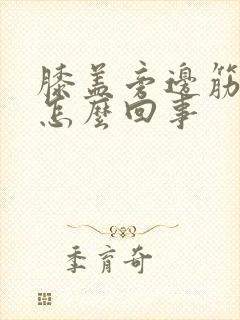 膝盖旁邊筋
怎麼回事
季育奇